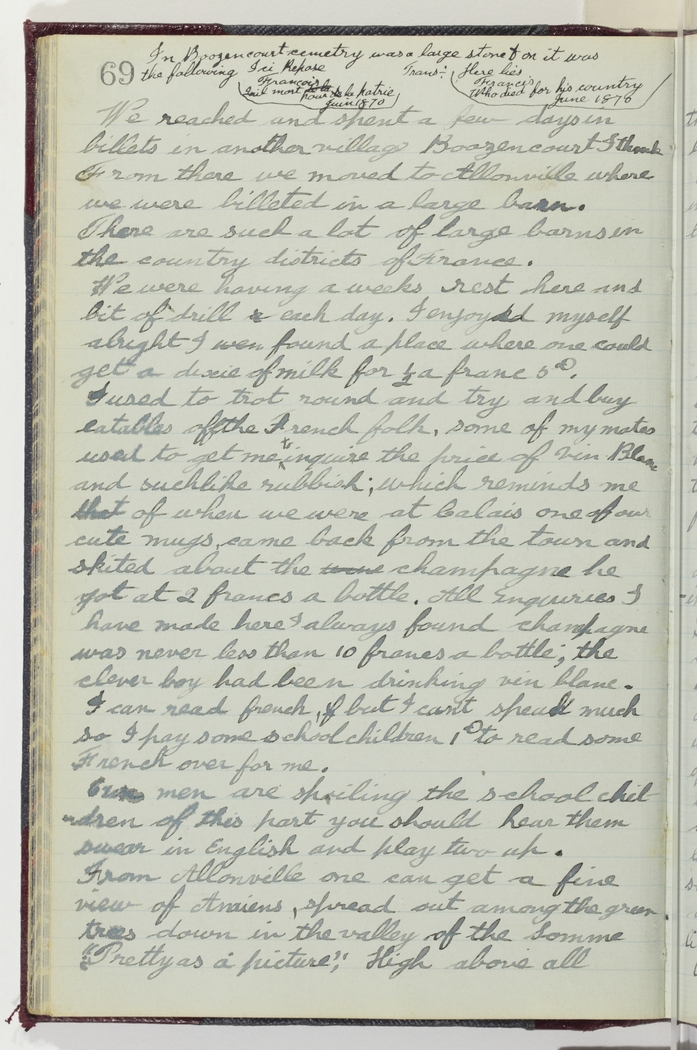 69 In Boozencourt cemetry was a large stone & on it was
the following Ici Repose Trans:- Here lies
Francois Francis
Qui mort pour la patrie Who died for his country
Juin 1870 June 1870
We reached and spent a few days in
billets in another village Boozencourt I think
From there we moved to Allonville where
we were billeted in a large barn.
There are such a lot of large barns in
the country districts of France.
We were having a weeks rest here and
bit of drill each day. I enjoyed myself
alright I found a place where one could
get a dixie of milk for ½ a franc 5D.
I used to trot round and try and buy
eatables off the French folk, some of my mates
used to get me to inquire the price of Vin Blanc
and suchlike rubbish; which reminds me
that of when we were at Calais one of our
cute mugs, came back from the town and
skited about the champagne he
got at 2 francs a bottle. All Enquiries I
have made here I always found champagne
was never less than 10 francs a bottle; the
clever boy had been drinking vin blanc.
I can read french, but I cant speak much
so I pay some school children 1D to read some
French over for me.
Our men are spoiling the school chil-
-dren of this part you should hear them
swear in English and play two up.
From Allonville one can get a fine
view of Amiens, spread out among the green
trees down in the valley of the Somme
"Pretty as a picture"; High above all